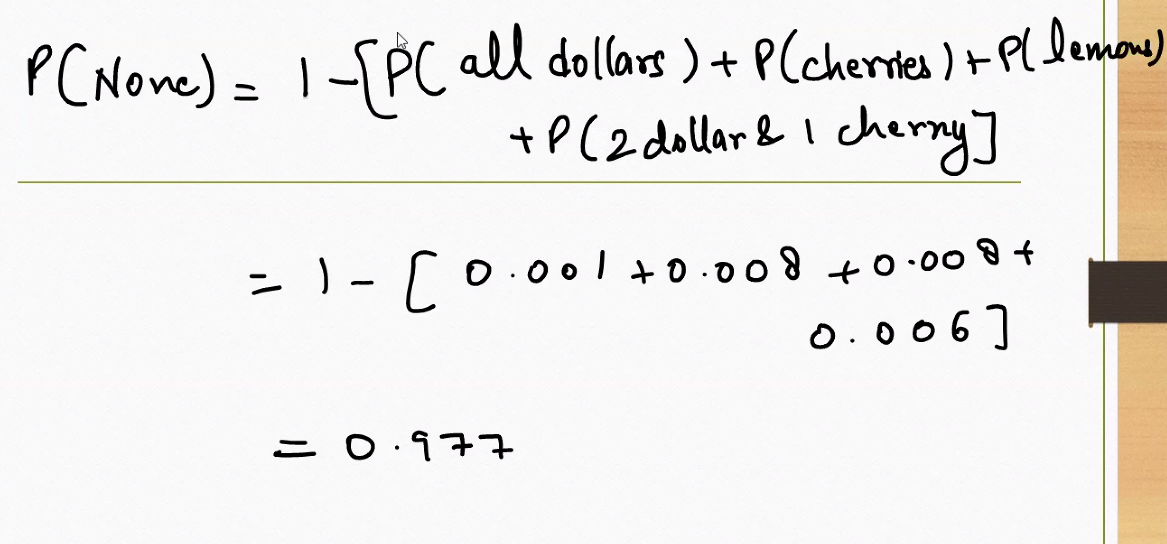 P(None) = 1 - [P( all dollars ) + P(cherries ) + P( lemons)
+ P( 2 dollar & 1 cherry]
= 1 - [ 0.001 + 0.008 + 0.008 +
0.006 ]
= 0.977